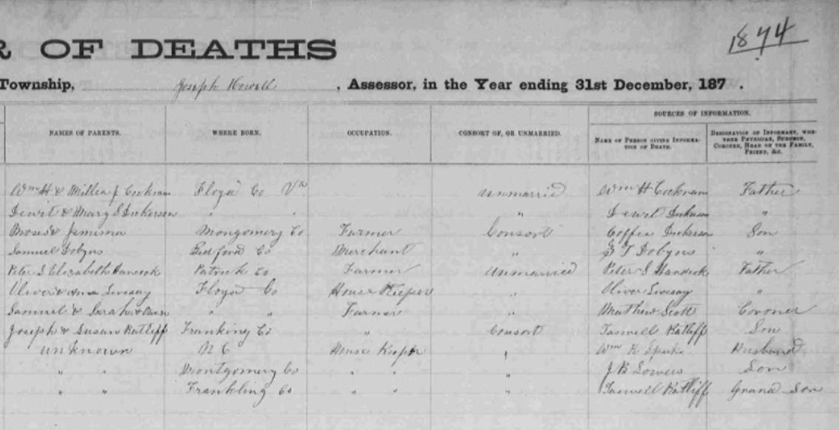 1874
R OF DEATHS
Township, Joseph Howell , Assessor, in the Year ending 31st December, 187 .
SOURCES OF INFORMATION.
NAMES OF PARENTS. WHERE BORN. OCCUPATION. CONSORT OF, OR UNMARRIED. NAME OF PERSON GIVING INFORMATION OF DEATH. DESIGNATION OF INFORMANT, WHETHER PHYSICIAN, SURGEON, CORONER, HEAD OF THE FAMILY, FRIEND, &c.
Wm H & Millea J Cockram Floyd Co Va unmarried Wm H Cockram Father
Dewit & Mary Dickerson " " " Dewit Dickerson "
Jemima Montgomery Co Farmer Consort Coffee Dickerson Son
Samuel Dobyns Bedford Co Merchant " S T Dobyns "
Peter & Elizabeth Hancock Patrick Co Farmer unmarried Peter Hancock Father
Oliver & Livesay Floyd Co House Keeper " Oliver Livesay "
Samuel & Sarah " " Farmer " Matthew Scott Coroner
Joseph & Susan Ratliff Frankling Co " Consort Taswell Ratliff Son
unknown N C House Keeper " Wm R Sparks Husband
" " Montgomery Co " " " J B Sowers Son
" " Frankling Co " " " Taswell Ratliff Grand Son